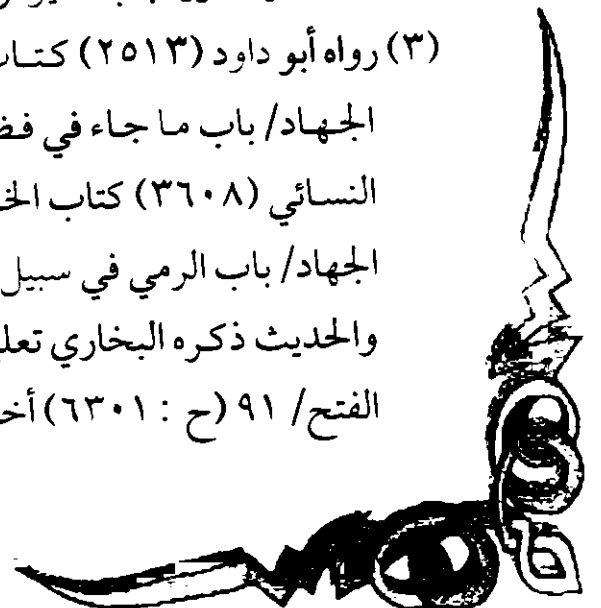 (٣) رواه أبو داود (٢٥١٣) كتـاب
الجـهـاد/ باب مـا جـاء في فـضـ
النسـائي (٣٦٠٨) كتاب الخـ
الجهاد/ باب الرمي في سبيل
والحديث ذكـره البخاري تعليـ
الفتح/ ٩١ (ح : ٦٣٠١) أخـ